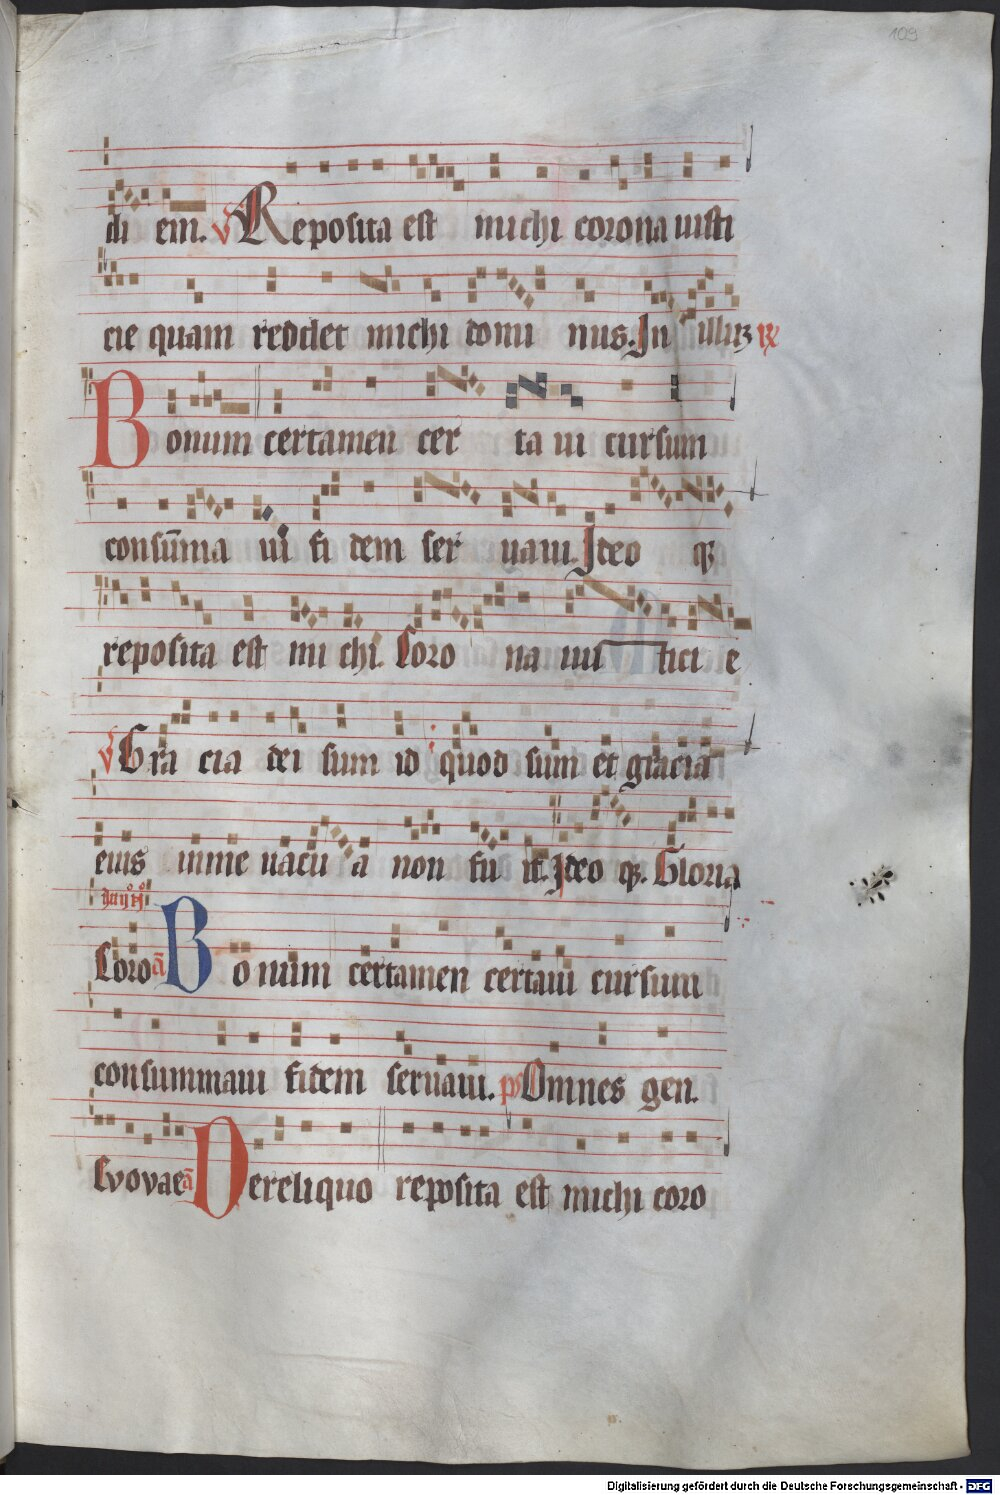 109
di em. V Reposita est michi corona iusti
cie quam reddet michi domi nus. In illa
Bonum certamen cer ta ui cursum
consu̅ma ui fi dem ser uaui. Ideo
reposita est mi chi Coro na ius tici e
V Gra cia dei sum id quod sum et gracia
eius in me uacu a non fu it. Ideo Gloria
Coro a̅ Bo num certamen certaui cursum
consummaui fidem seruaui. ps Omnes gen.
Evovae a̅ Dereliquo reposita est michi coro
Digitalisierung gefördert durch die Deutsche Forschungsgemeinschaft - DFG